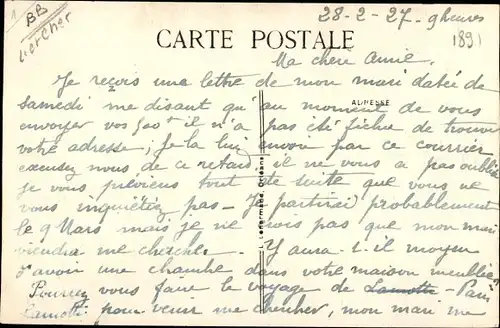 1
BB
Liercher
28-2-27. 9 heures
1891
CARTE POSTALE
Ma chère Amie.
ADRESSE
Je reçois une lettre de mon mari datée de
samedi me disant qu'au moment de vous
envoyer vos 500f il n'a pas été fichu de trouver
votre adresse; Je la lui envoie par ce courrier
excusez nous de ce retard il ne vous a pas oubliée
Je vous préviens tout de suite que vous ne
vous inquiétiez pas - Je partirai probablement
le 9 Mars mais je ne crois pas que mon mari
viendra me chercher. Y aura-t-il moyen
d'avoir une chambre dans votre maison meublée?
Pourriez vous faire le voyage de Lamotte - Paris
Lamotte pour venir me chercher, mon mari me
L. Lenormand, Orléans